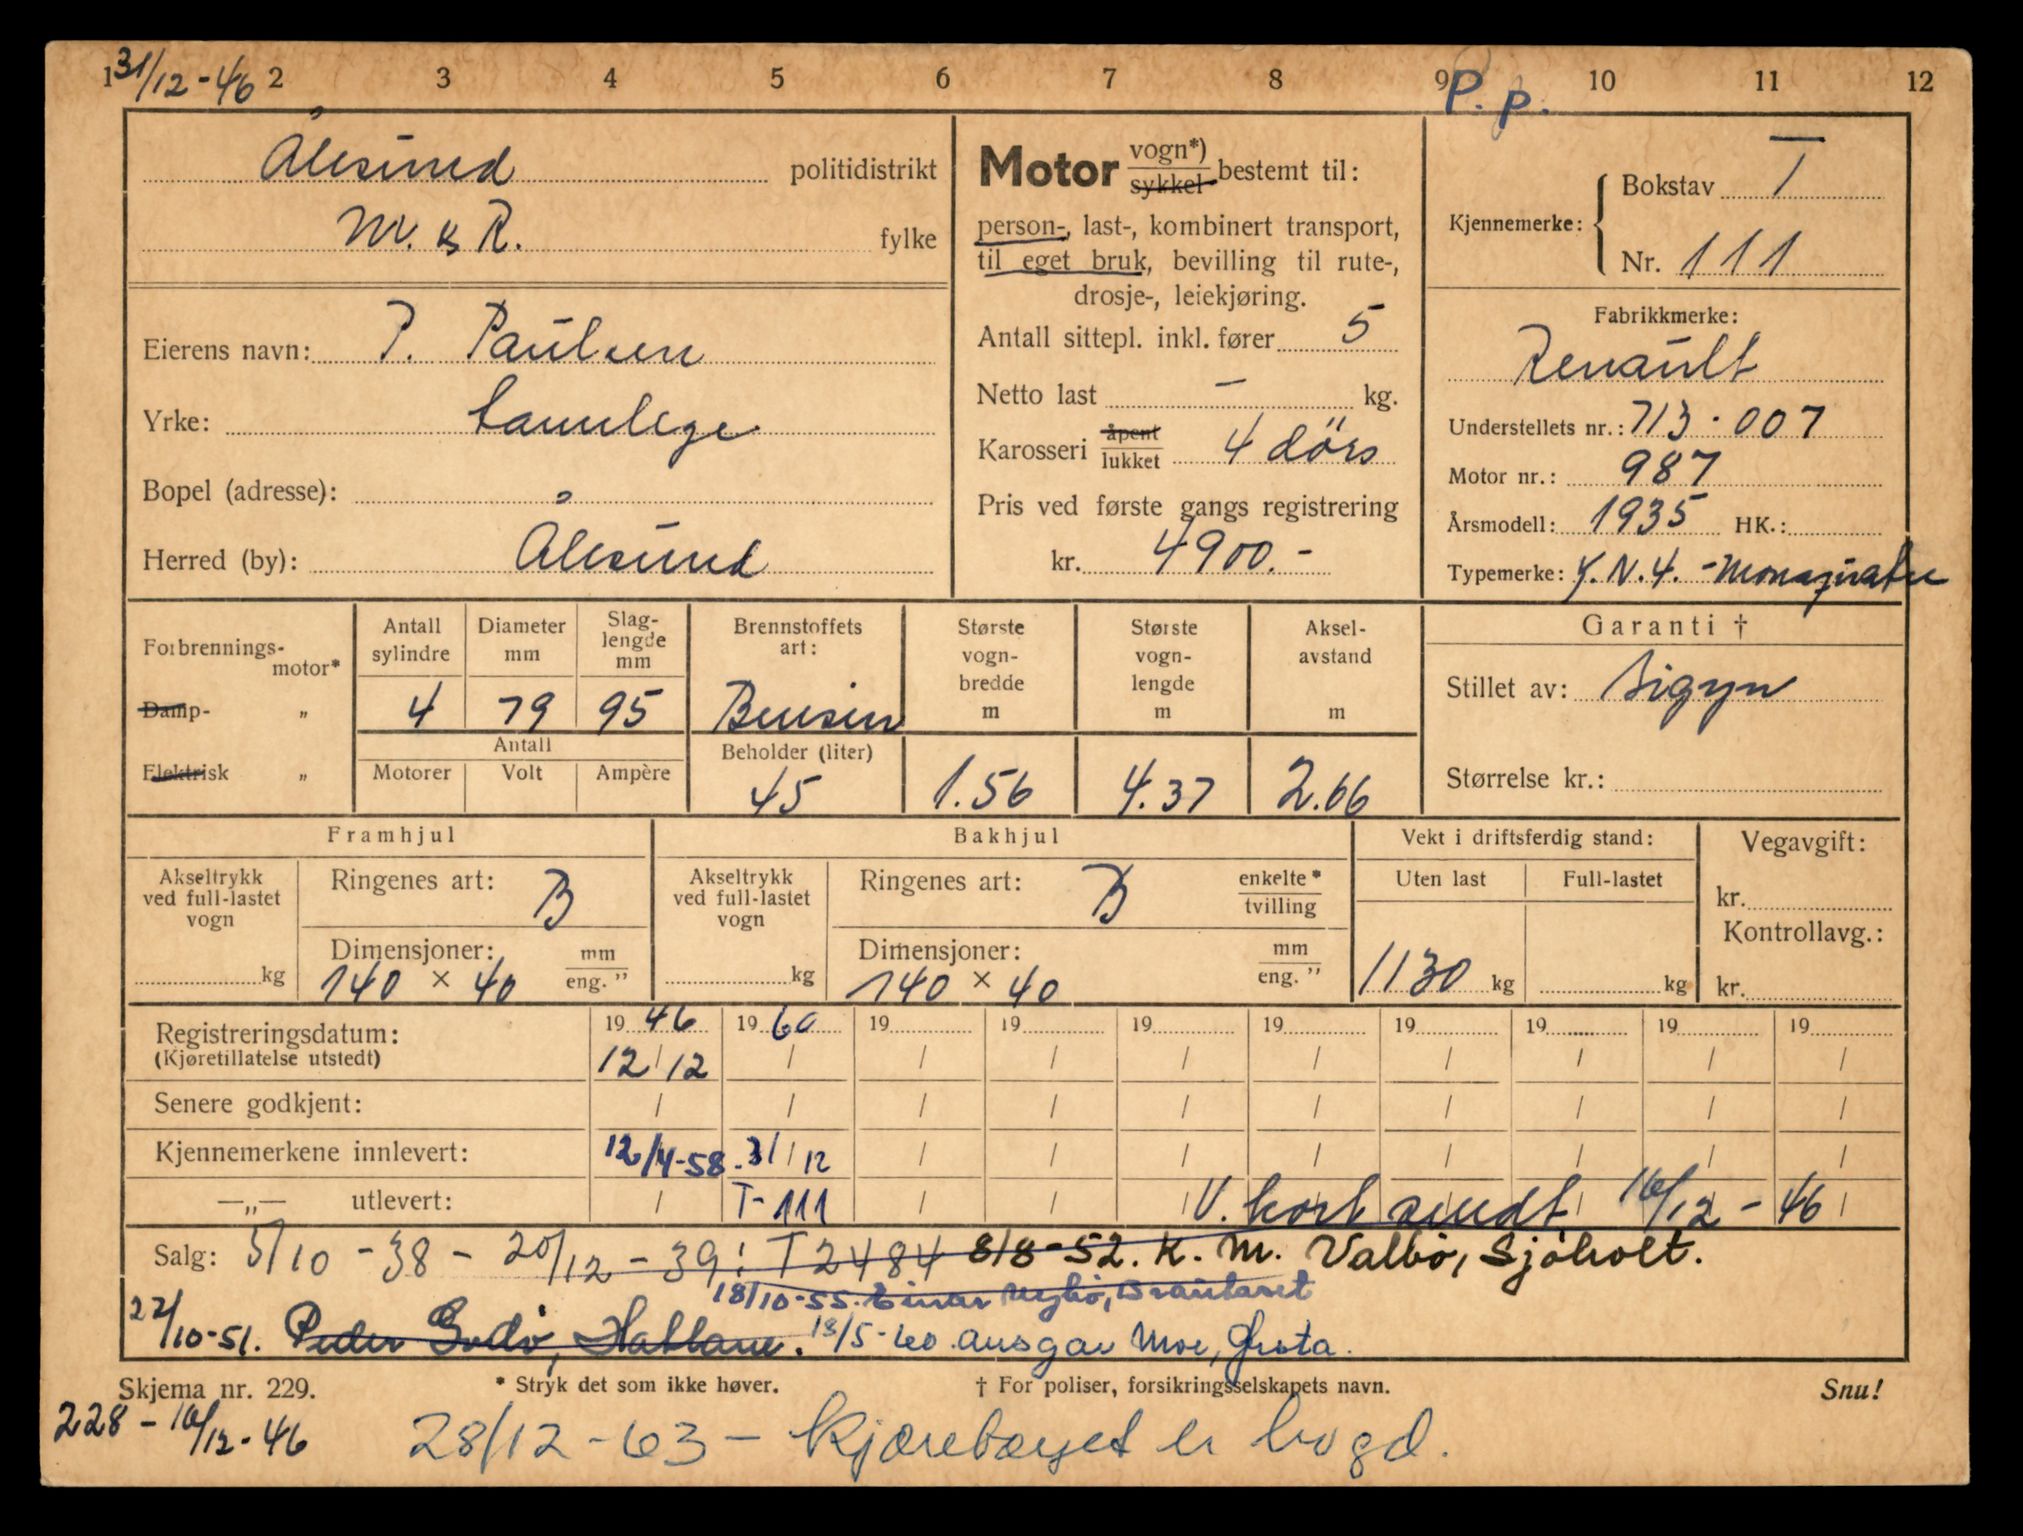 1 31/12-46 2 3 4 5 6 7 8 9 10 11 12
P. p.
Ålesund politidistrikt
M. & R. fylke
Eierens navn: P. Paulsen
Yrke: tannlege
Bopel (adresse):
Herred (by): Ålesund
Motor vogn*) sykkel bestemt til:
person-, last-, kombinert transport,
til eget bruk, bevilling til rute-,
drosje-, leiekjøring.
Antall sittepl. inkl. fører 5
Netto last — kg.
Karosseri åpent lukket 4 dörs
Pris ved første gangs registrering
kr. 4900.-
Kjennemerke: Bokstav T
Nr. 111
Fabrikkmerke:
Renault
Understellets nr.: 713.007
Motor nr.: 987
Årsmodell: 1935 HK.:
Typemerke: Y.N.4. - Monaquatre
Forbrennings-motor*
Damp- „
Elektrisk „
Antall sylindre 4
Diameter mm 79
Slag-lengde mm 95
Antall
Motorer Volt Ampère
Brennstoffets art: Bensin
Beholder (liter) 45
Største vogn-bredde m 1.56
Største vogn-lengde m 4.37
Aksel-avstand m 2.66
Garanti †
Stillet av: Sigyn
Størrelse kr.:
Framhjul
Akseltrykk ved full-lastet vogn kg
Ringenes art: B
Dimensjoner: mm eng. ”
140 × 40
Bakhjul
Akseltrykk ved full-lastet vogn kg
Ringenes art: B enkelte* tvilling
Dimensjoner: mm eng. ”
140 × 40
Vekt i driftsferdig stand:
Uten last Full-lastet
1130 kg kg
Vegavgift:
kr.
Kontrollavg.:
kr.
Registreringsdatum: 19 46 19 60 19 19 19 19 19 19 19 19
(Kjøretillatelse utstedt) 12/12 / / / / / / / / /
Senere godkjent: / / / / / / / / / /
Kjennemerkene innlevert: 12/4-58 - 31/12 / / / / / / / /
—„— utlevert: / T-111 / / / V. kort sendt 16/12 - 46
Salg: 5/10 - 38 - 20/12 - 39: T 2484 8/8-52. K. M. Valbö, Sjöholt.
18/10-55. Einar Nybö, Brautaset
22/10-51. Peder Godö, Hatlane. 18/5-60. Ansgar Moe, Grota.
Skjema nr. 229. * Stryk det som ikke høver. † For poliser, forsikringsselskapets navn. Snu!
228 - 16/12-46
28/12 - 63 - kjæretøyet er bygd.